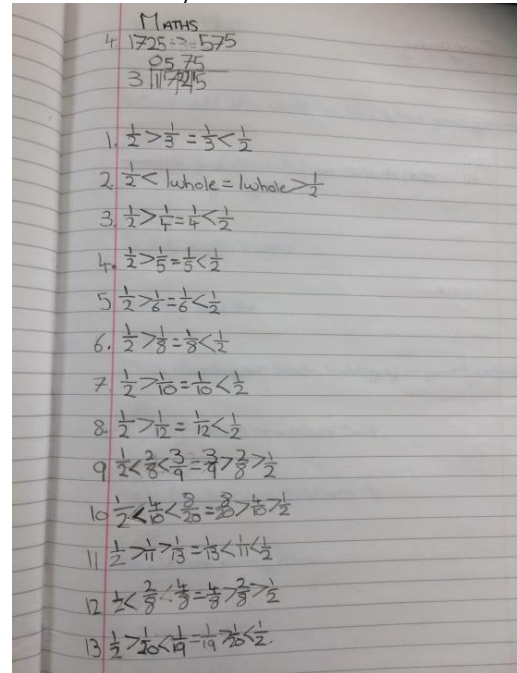 MATHS
4. 1725÷3=575
0575
3 1725
1. 1/2 > 1/3 = 1/3 < 1/2
2. 1/2 < 1whole = 1whole > 1/2
3. 1/2 > 1/4 = 1/4 < 1/2
4. 1/2 > 1/5 = 1/5 < 1/2
5 1/2 > 1/6 = 1/6 < 1/2
6. 1/2 > 1/8 = 1/8 < 1/2
7. 1/2 > 1/10 = 1/10 < 1/2
8. 1/2 > 1/12 = 1/12 < 1/2
9 1/2 < 2/8 < 3/9 = 3/9 > 2/8 > 1/2
10 1/2 < 4/10 < 8/20 = 8/20 > 4/10 > 1/2
11 1/2 > 1/11 > 1/13 = 1/13 < 1/11 < 1/2
12 1/2 < 2/8 < 4/8 = 4/8 > 2/8 > 1/2
13 1/2 > 1/20 < 1/19 = 1/19 > 1/20 < 1/2.